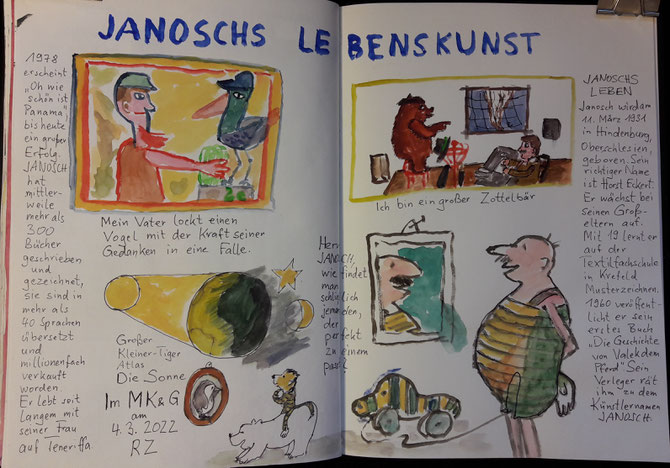 JANOSCHS LEBENSKUNST
1978
erscheint
„Oh wie
schön ist
Panama",
bis heute
ein großer
Erfolg.
JANOSCH
hat
mittler-
weile
mehr als
300
Bücher
geschrieben
und
gezeichnet,
sie sind in
mehr als
40 Sprachen
übersetzt
und
millionenfach
verkauft
worden.
Er lebt seit
Langem mit
seiner Frau
auf Teneriffa.
Mein Vater lockt einen
Vogel mit der Kraft seiner
Gedanken in eine Falle.
Großer
Kleiner-Tiger
Atlas
Die Sonne
Im MK&G
am
4.3.2022
RZ
Ich bin ein großer Zottelbär
Herr
JANOSCH,
wie findet
man
schließlich
jemanden,
der
perfekt
zu einem
passt?
JANOSCHS
LEBEN
Janosch wird am
11. März 1931
in Hindenburg,
Oberschlesien,
geboren. Sein
richtiger Name
ist Horst Eckert.
Er wächst bei
seinen Groß-
eltern auf.
Mit 19 lernt er
auf der
Textilfachschule
in Krefeld
Musterzeichnen.
1960 veröffent
licht er sein
erstes Buch
„Die Geschichte
von Valek dem
Pferd" Sein
Verleger rät
ihm zu dem
Künstlernamen
JANOSCH.